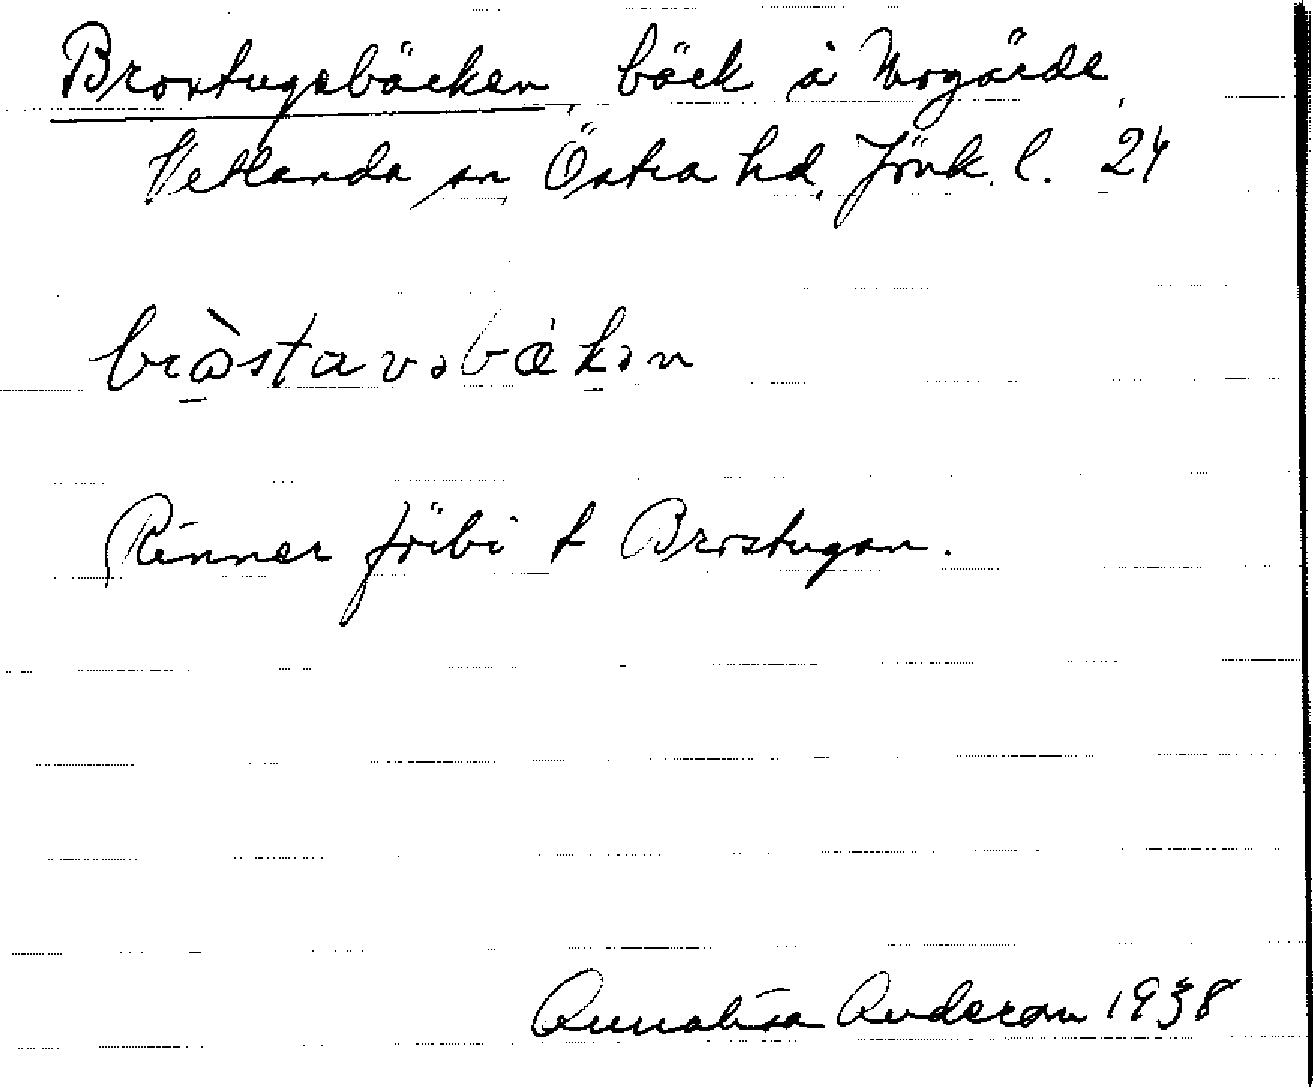 Brostugebäcken, bäck å Mogärde,
Vetlanda sn, Östra hd, Jönk. l. 24
Rinner förbi t Brostugan.
Annalisa Anderson 1938